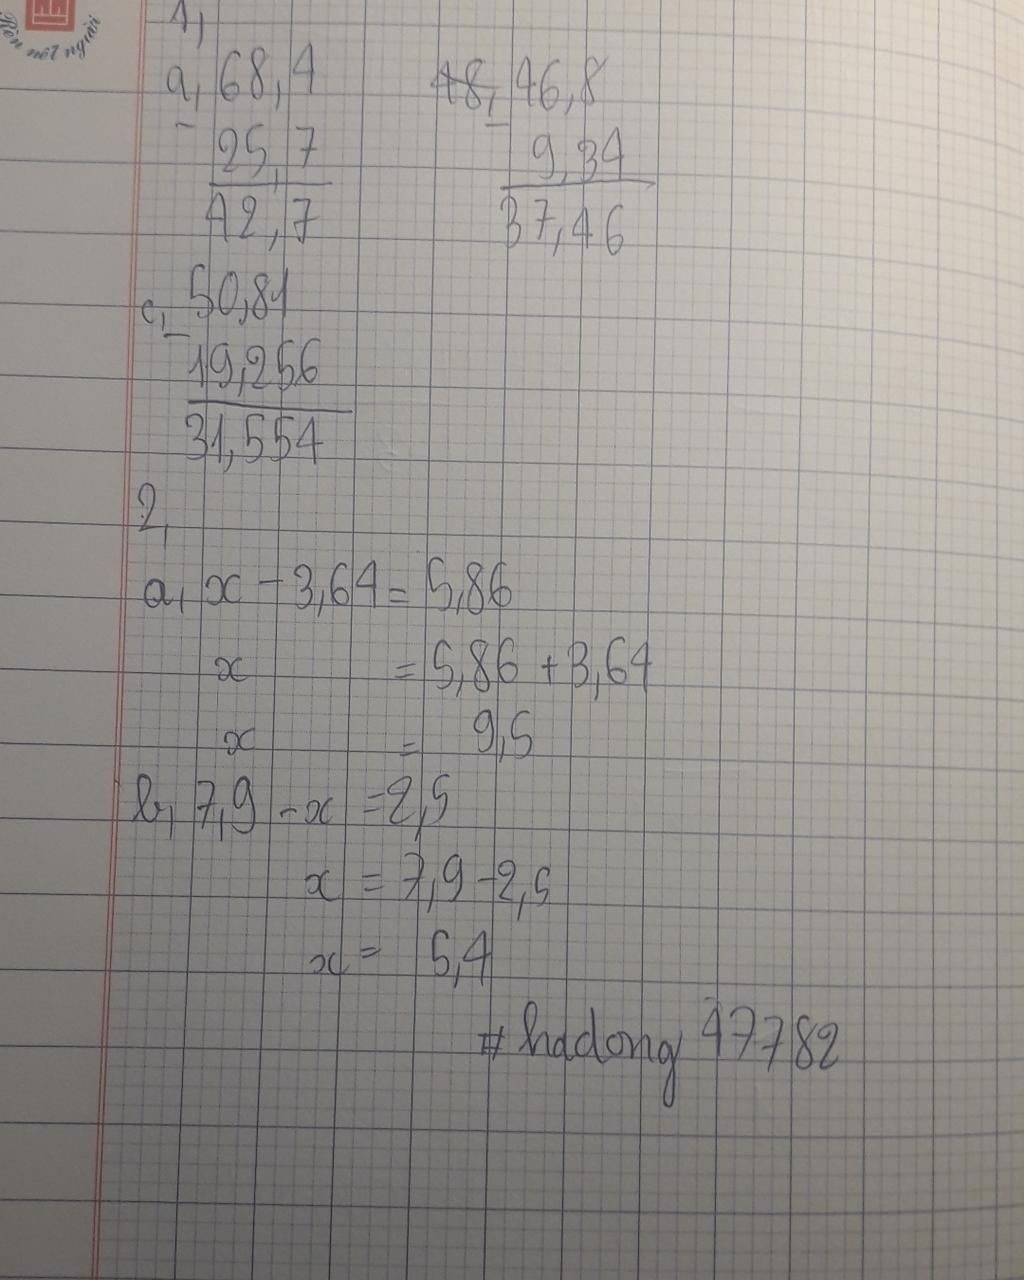 Rèn nét người
1,
a, 68,4 48, 46,8
- 25,7 - 9,34
42,7 37,46
c, 50,81
- 19,256
31,554
2,
a, x - 3,64 = 5,86
x = 5,86 + 3,64
x = 9,5
b, 7,9 - x = 2,5
x = 7,9 - 2,5
x = 5,4
# hadong 47782